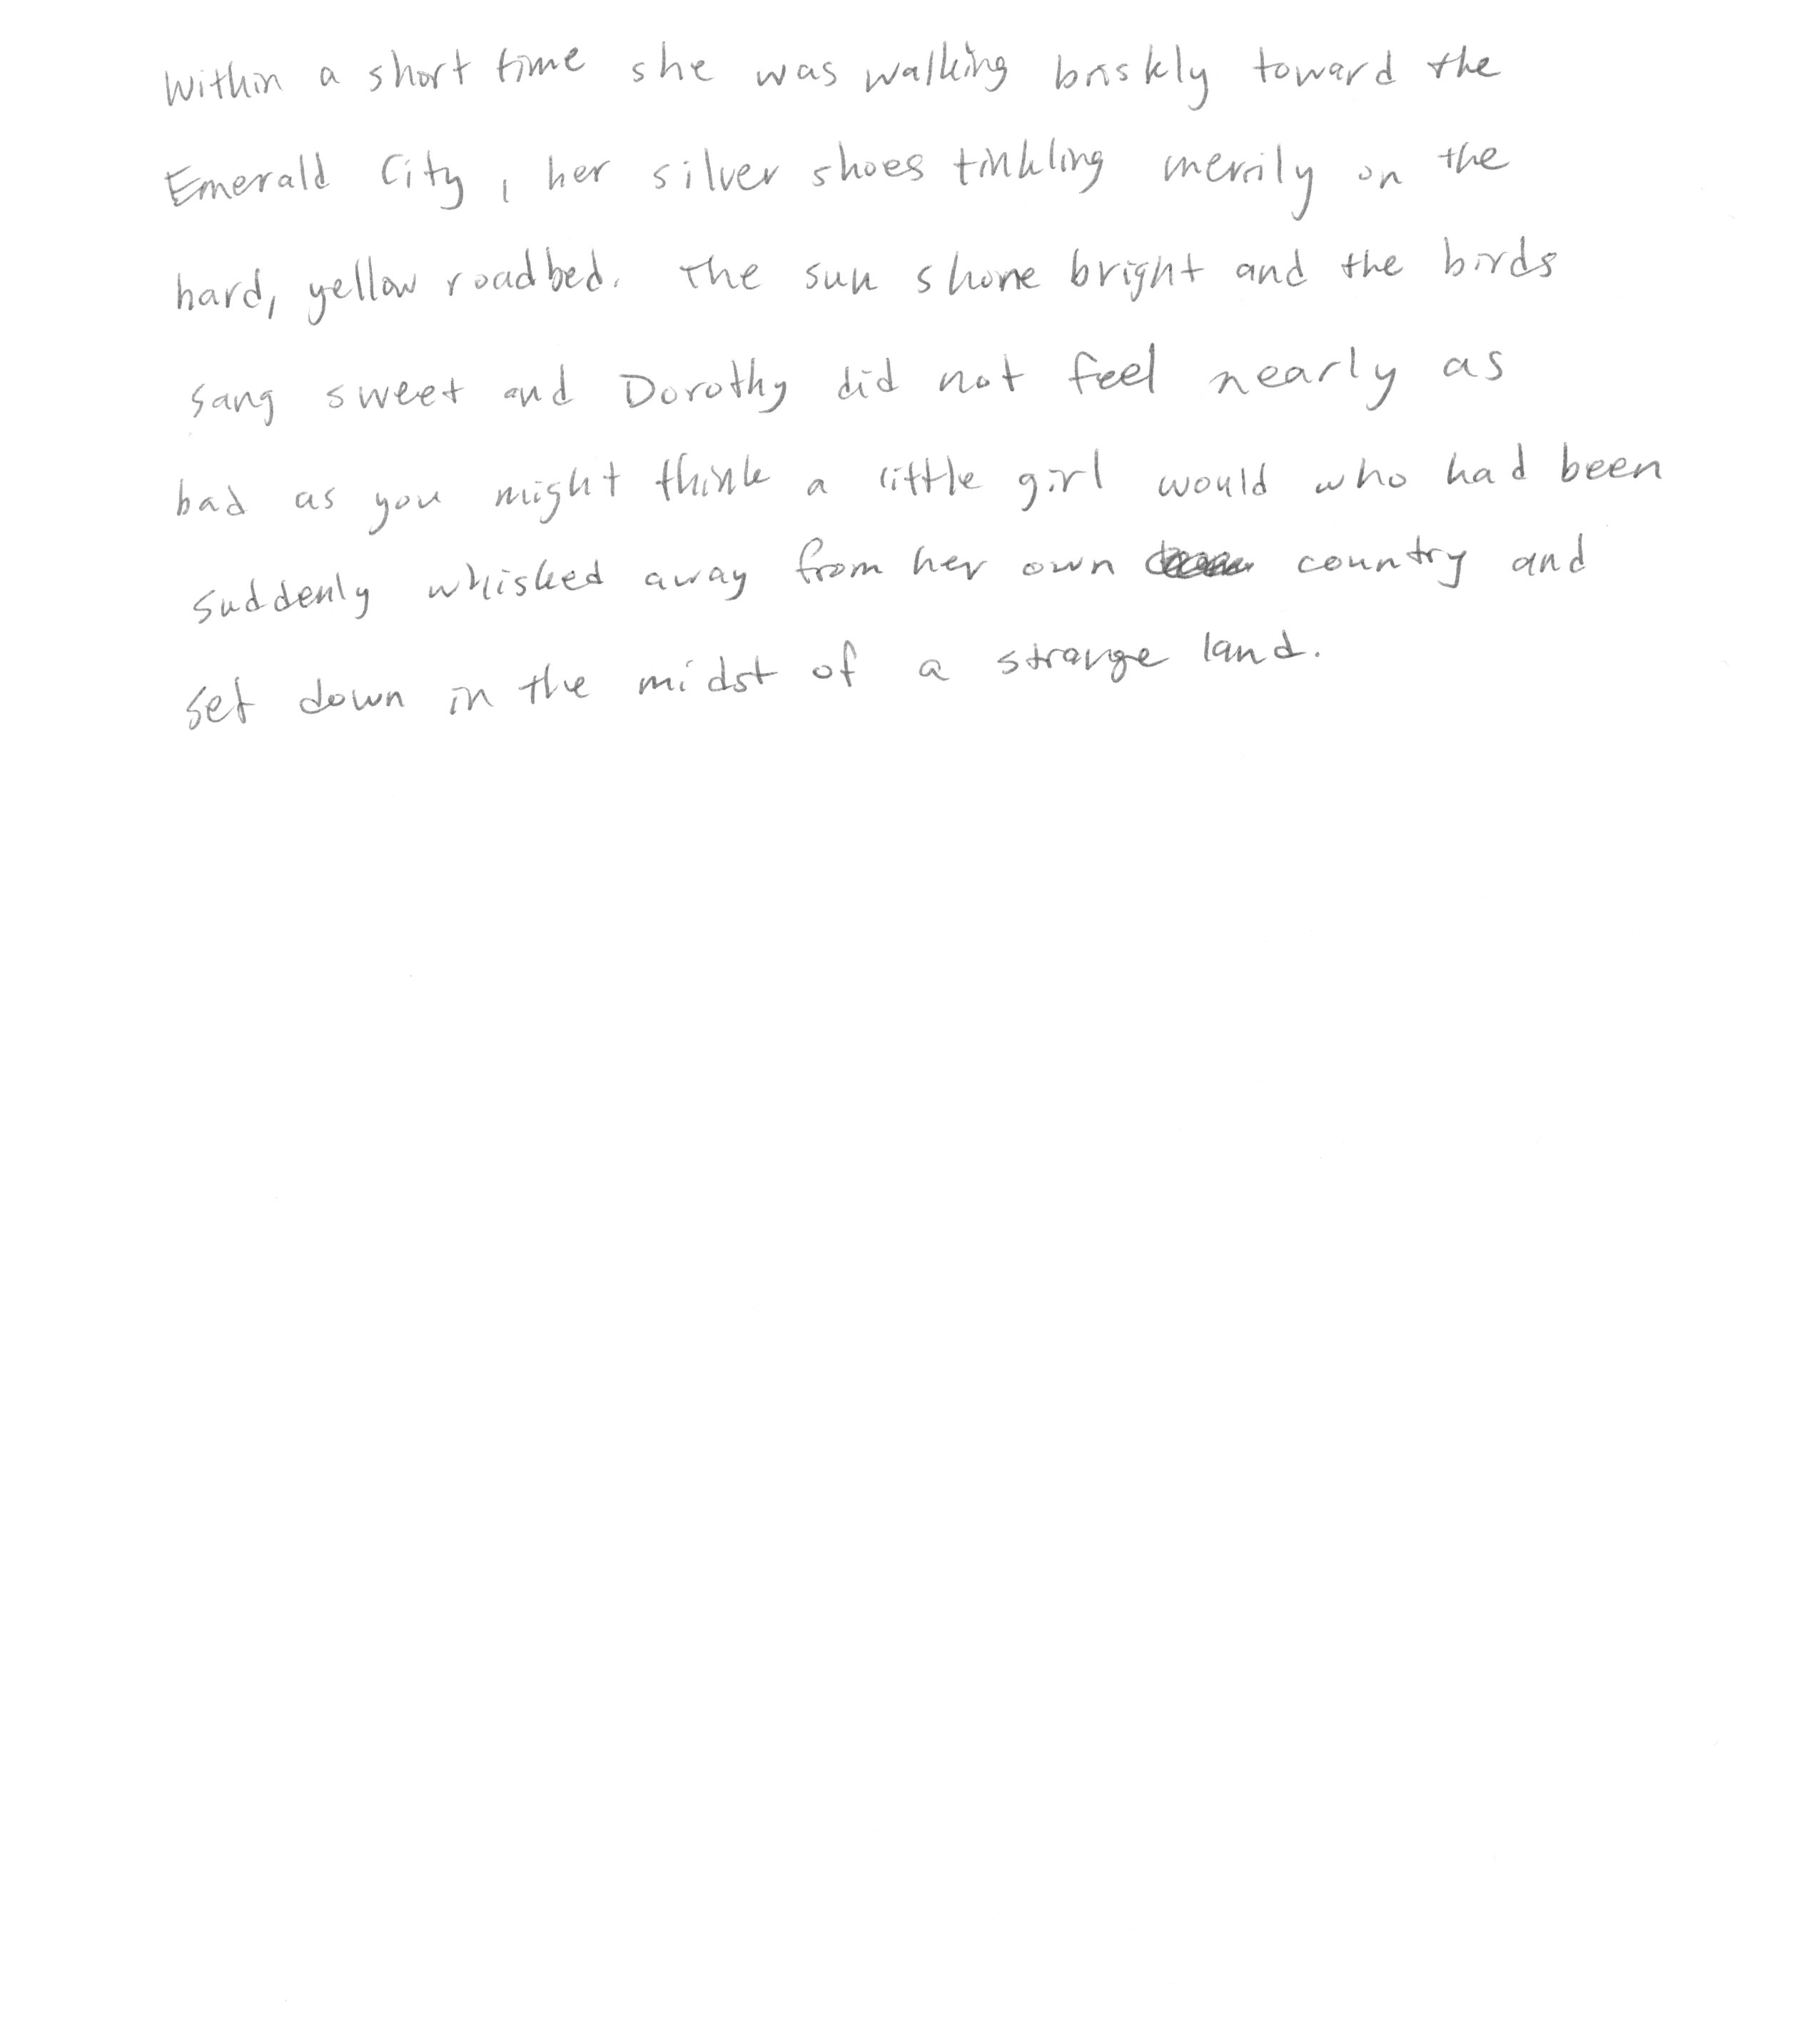 Within a short time she was walking briskly toward the
Emerald City, her silver shoes tinkling merrily on the
hard, yellow roadbed. The sun shone bright and the birds
sang sweet and Dorothy did not feel nearly as
bad as you might think a little girl would who had been
suddenly whisked away from her own country and
set down in the midst of a strange land.